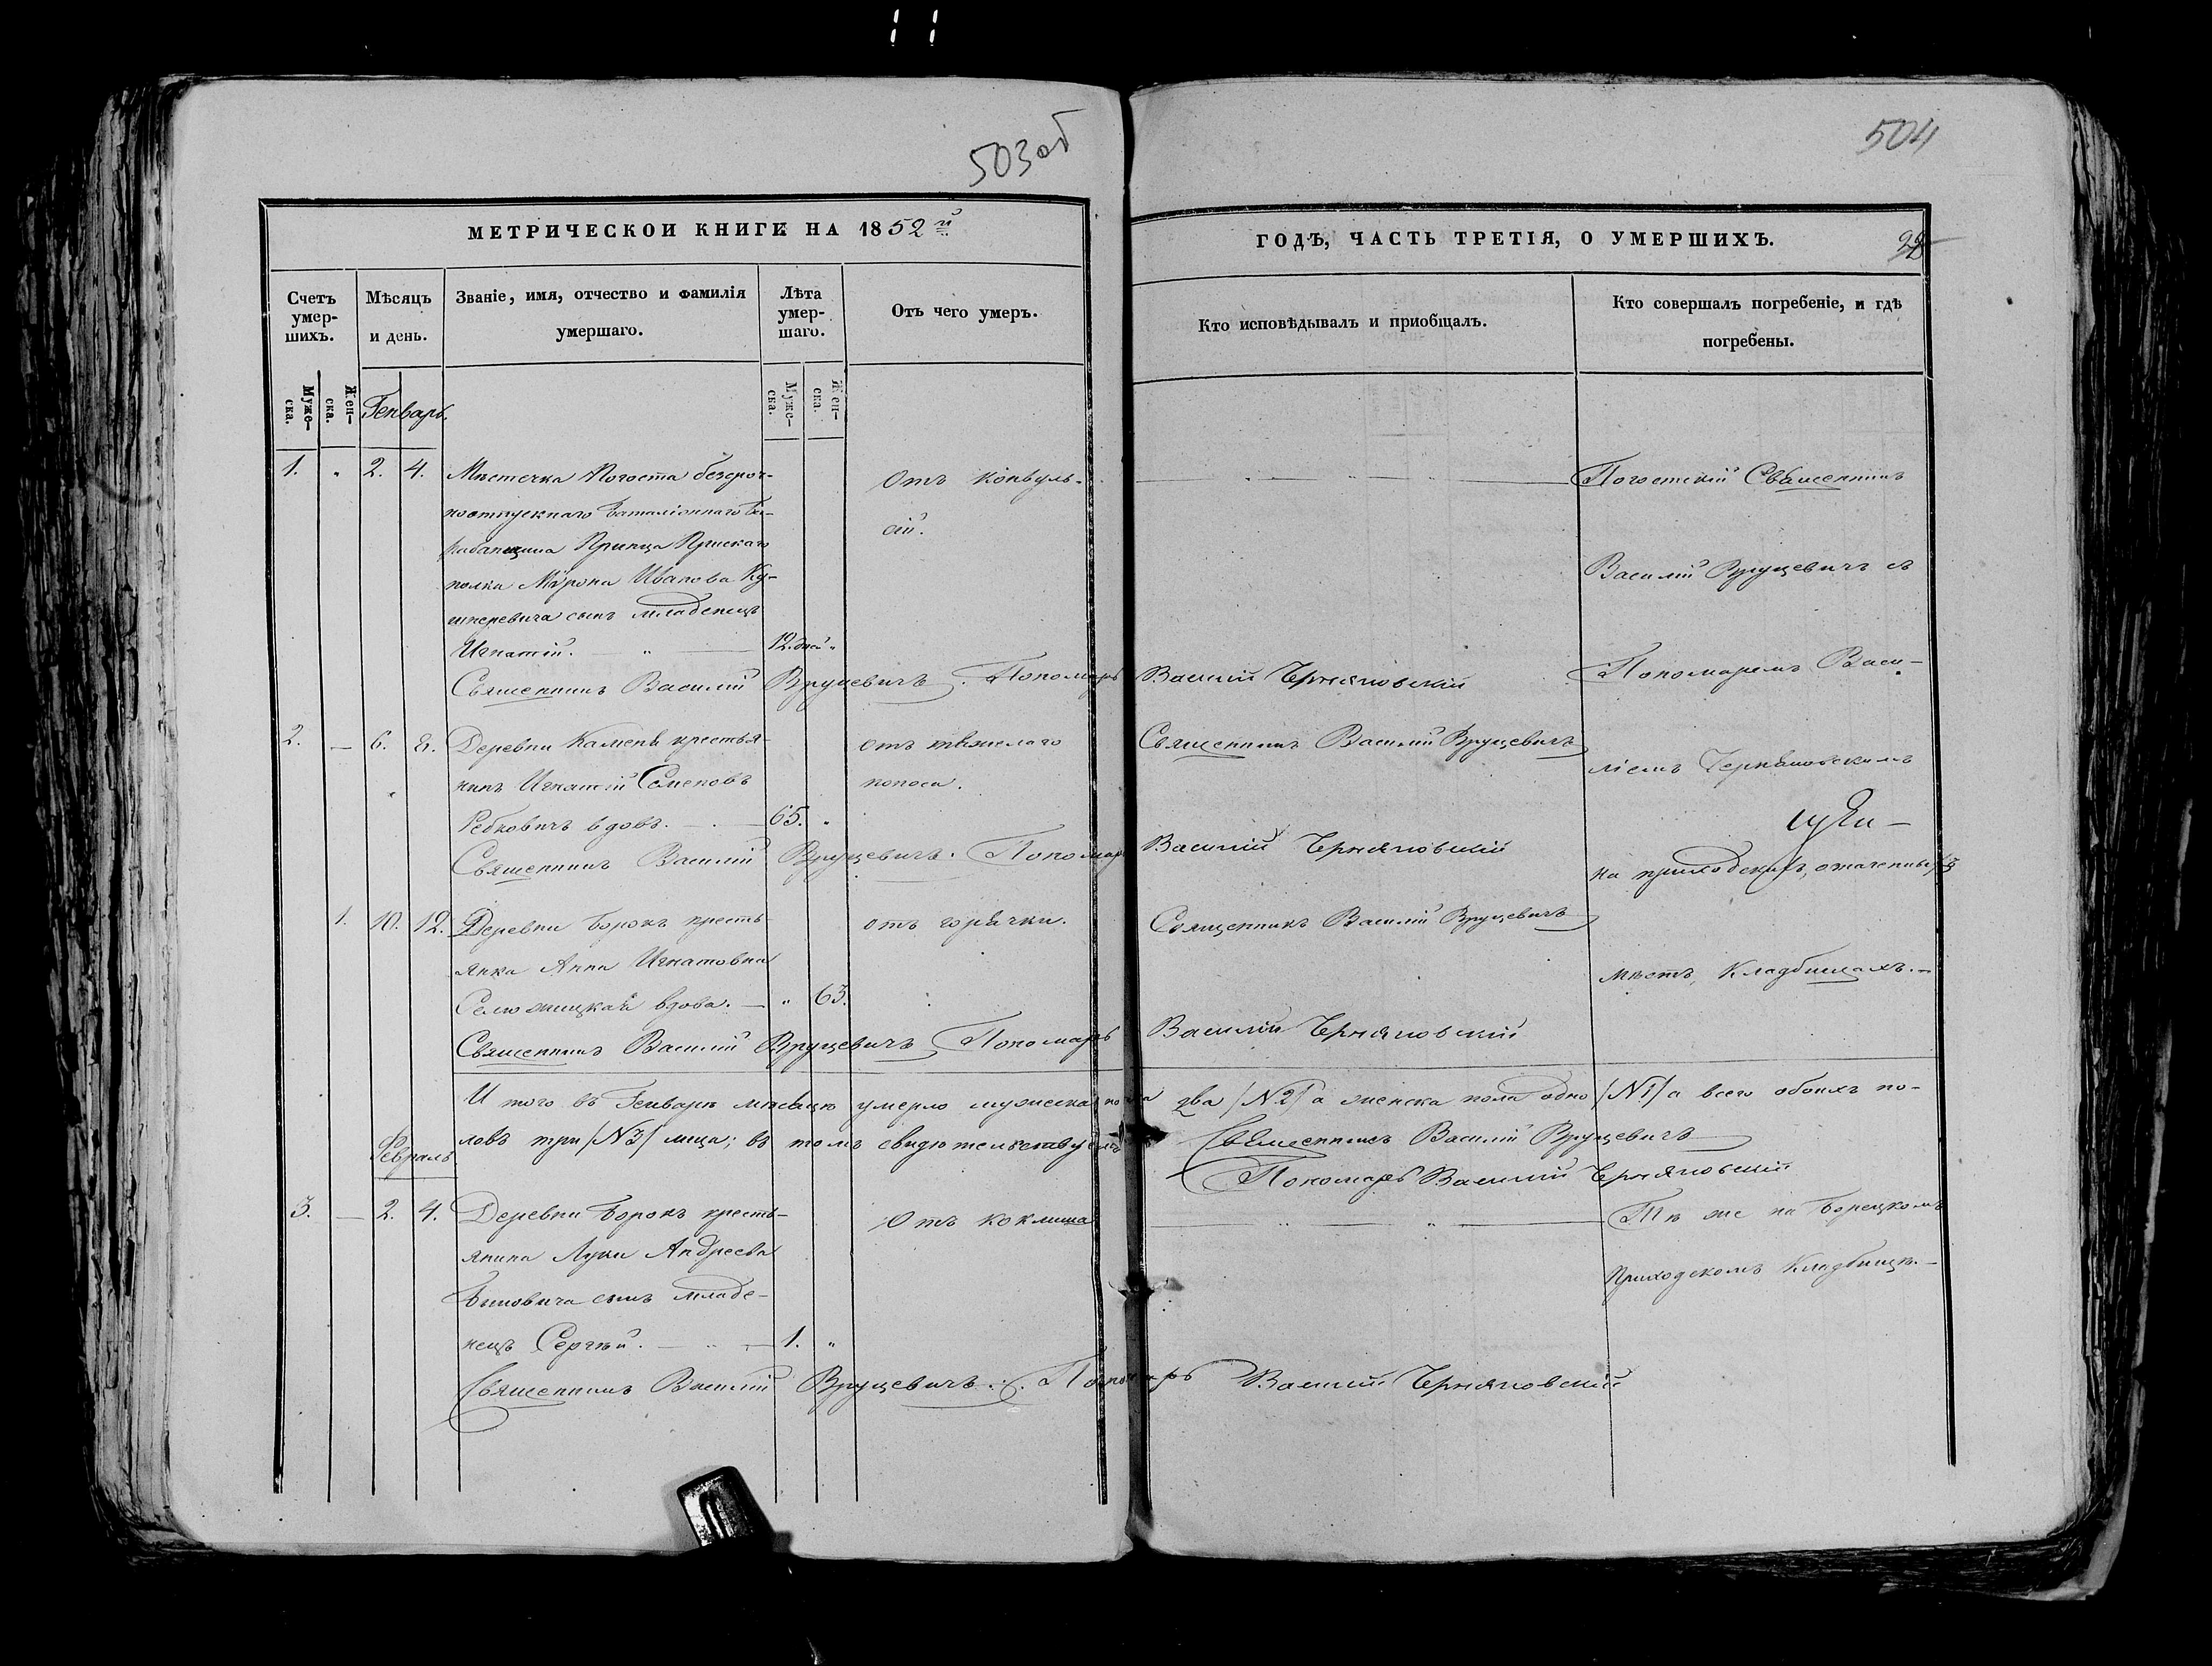 503 об
504
МЕТРИЧЕСКОЙ КНИГИ НА 1852й
ГОДЪ, ЧАСТЬ ТРЕТІЯ, О УМЕРШИХЪ.
Счетъ умер-шихъ.
Мѣсяцъ и день.
Званіе, имя, отчество и фамилія умершаго.
Лѣта умер-шаго.
Отъ чего умеръ.
Кто исповѣдывалъ и пріобщалъ.
Кто совершалъ погребеніе, и гдѣ погребены.
Муже-ска.
Жен-ска.
Муже-ска.
Жен-ска.
Генварь.
1. „ 2. 4. Мѣстечка Погоста безсроч-
ноотпускнаго баталіоннаго ба-
рабанщика Принца Прускаго
полка Мѵрона Иванова Ку-
шнеревича сынъ младенецъ
Игнатій. — „ — 12. дней „
Отъ конвуль-
сій.
Погостскій Священникъ
Василій Вруцевичъ съ
Пономаремъ Васи-
ліемъ Черняковскимъ
на приходскихъ, означенныхъ
мѣстъ, Кладбищахъ.—
Священникъ Василій Вруцевичъ. Пономарь Василій Черняковскій
2. — 6. 8. Деревни Каменя крестья-
нинъ Игнатій Семеновъ
Ребковичъ вдовъ. — 65. „
отъ тяжелаго
поноса.
Священникъ Василій Вруцевичъ
Священникъ Василій Вруцевичъ. Пономарь Василій Черняковскій
1. 10. 12. Деревни Борокъ кресть-
янка Анна Игнатовна
вдова. — „ 63.
отъ горячки.
Священникъ Василій Вруцевичъ
Священникъ Василій Вруцевичъ Пономарь Василій Черняковскій
И того въ Генварѣ мѣсяцѣ умерло мужеска пола два /№2/ а женска пола одно /№1/ а всего обоихъ по-
ловъ три /№3/ лица; въ томъ свидѣтельствуемъ Священникъ Василій Вруцевичъ
Пономарь Василій Черняковскій
Февраль
3. — 2. 4. Деревни Борокъ кресть-
янина Луки Андреева
Быковича сынъ младе-
нецъ Сергѣй. — 1. „
Отъ коклюша
Тѣ же на Борецкомъ
Приходскомъ Кладбищѣ.—
Священникъ Василій Вруцевичъ. Пономарь Василій Черняковскій